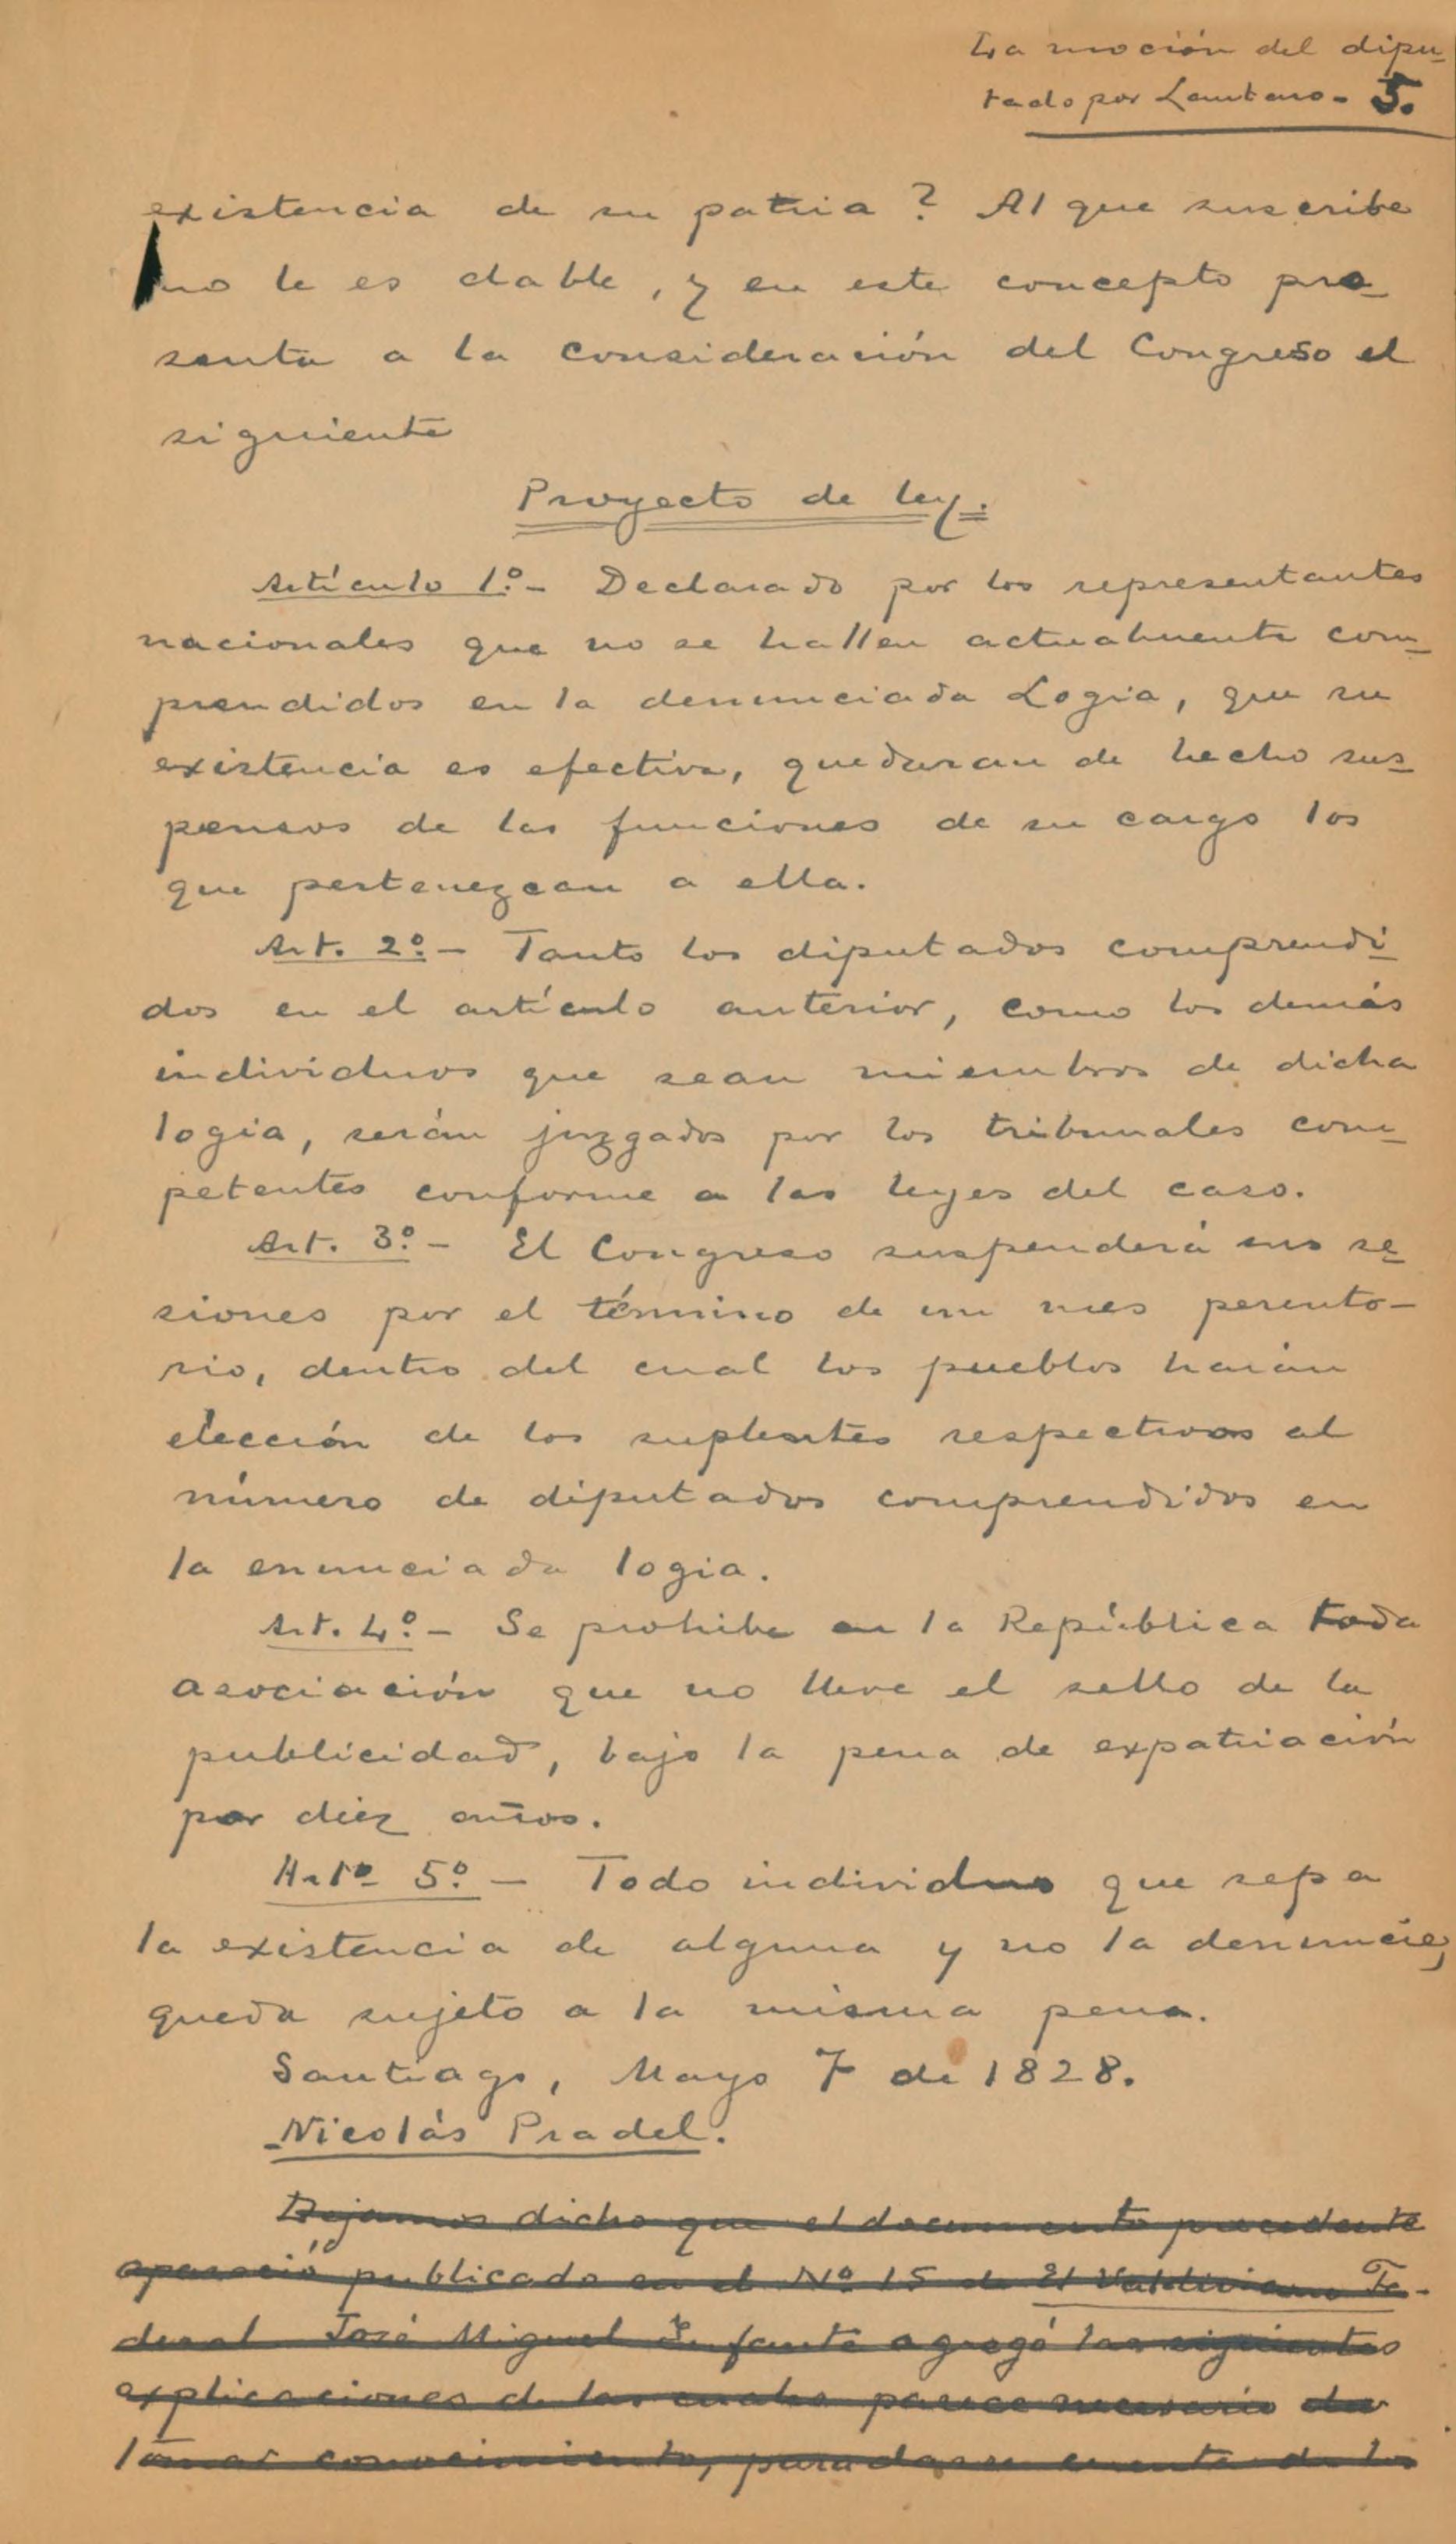 La moción del dipu-
tado por Lautaro- 5.
existencia de su patria? Al que suscribe
no le es dable, y en este concepto pre-
senta a la consideración del Congreso el
siguiente
Proyecto de ley.
Artículo 1º.- Declarado por los representantes
nacionales que no se hallen actualmente com-
prendidos en la denunciada Logia, que su
existencia es efectiva, quedaran de hecho sus-
pensos de las funciones de su cargo los
que pertenezcan a ella.
Art. 2º.- Tanto los diputados comprendi-
dos en el artículo anterior, como los demás
individuos que sean miembros de dicha
logia, serán juzgados por los tribunales com-
petentes conforme a las leyes del caso.
Art. 3º.- El Congreso suspenderá sus se-
siones por el término de un mes perento-
rio, dentro del cual los pueblos harán
elección de los suplentes respectivos al
número de diputados comprendidos en
la enunciada logia.
Art. 4º.- Se prohibe en la República toda
asociación que no lleve el sello de la
publicidad, bajo la pena de expatriación
por diez años.
Artº 5º.- Todo individuo que sepa
la existencia de alguna y no la denuncie,
queda sujeto a la misma pena.
Santiago, Mayo 7 de 1828.
Nicolás Pradel.
Dejamos dicho que el documento precedente
apareció publicado en el Nº 15 de El Valdiviano Fe-
deral José Miguel Infante agregó las siguientes
explicaciones de las cuales parece necesario
tomar conocimiento, para darse cuenta de los